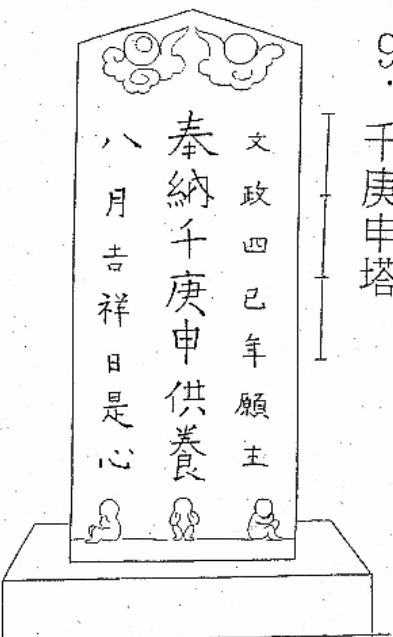 9.千庚申塔
文政四巳年願主
奉納千庚申供養
八月吉祥日是心